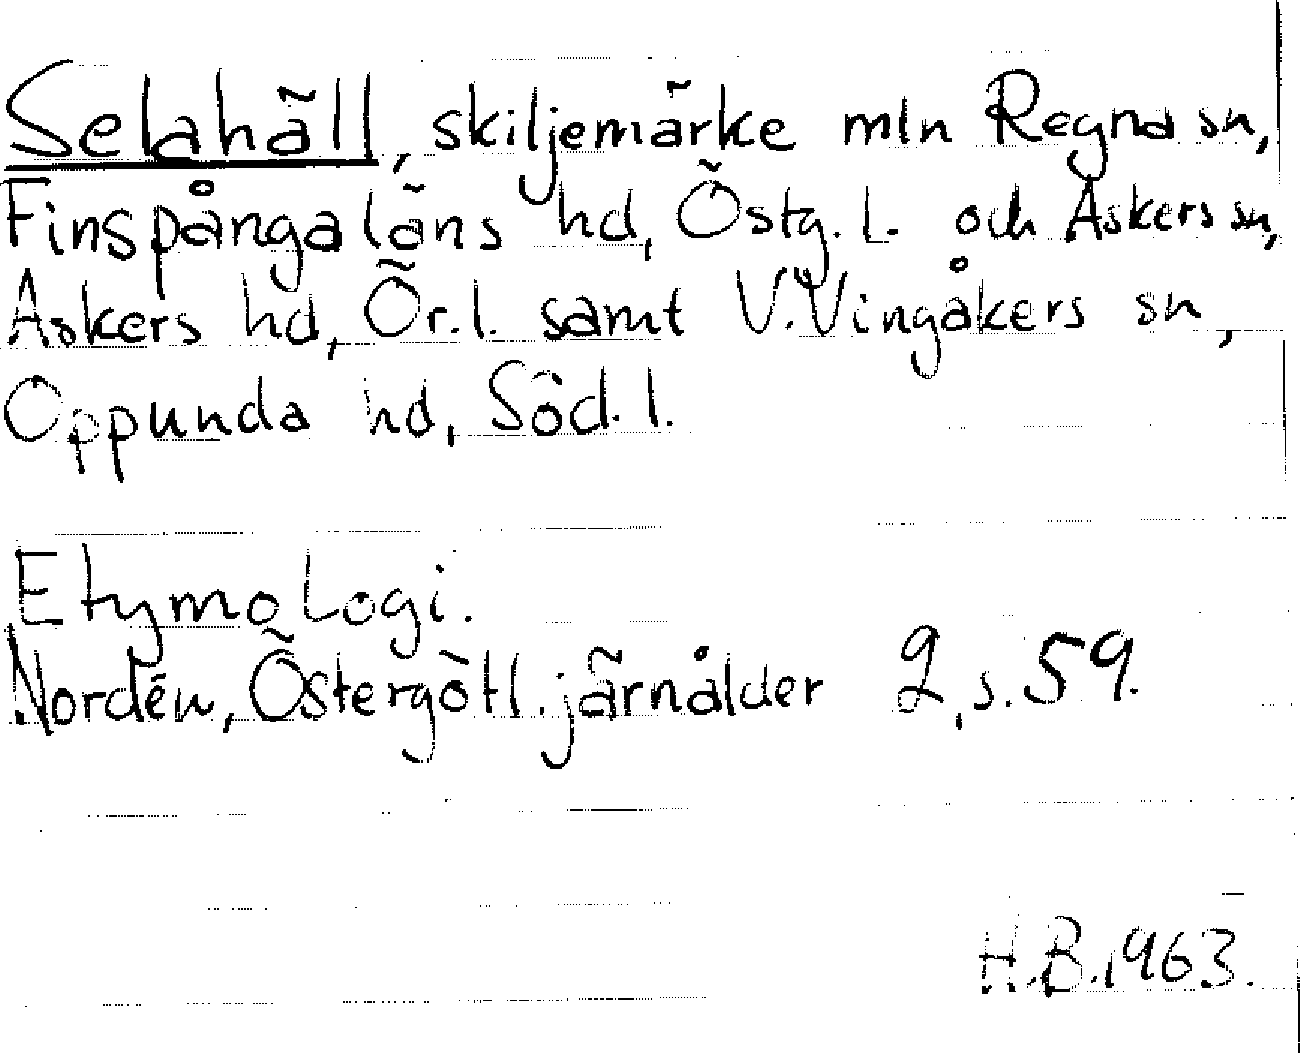 Selahäll, skiljemärke mln Regna sn,
Finspångaläns hd, Östg. l. och Askers sn,
Askers hd, Ör. l. samt V. Vingåkers sn,
Oppunda hd, Söd. l.
Etymologi.
Nordén, Östergötl. järnålder 2, s. 59.
H.B. 1963.